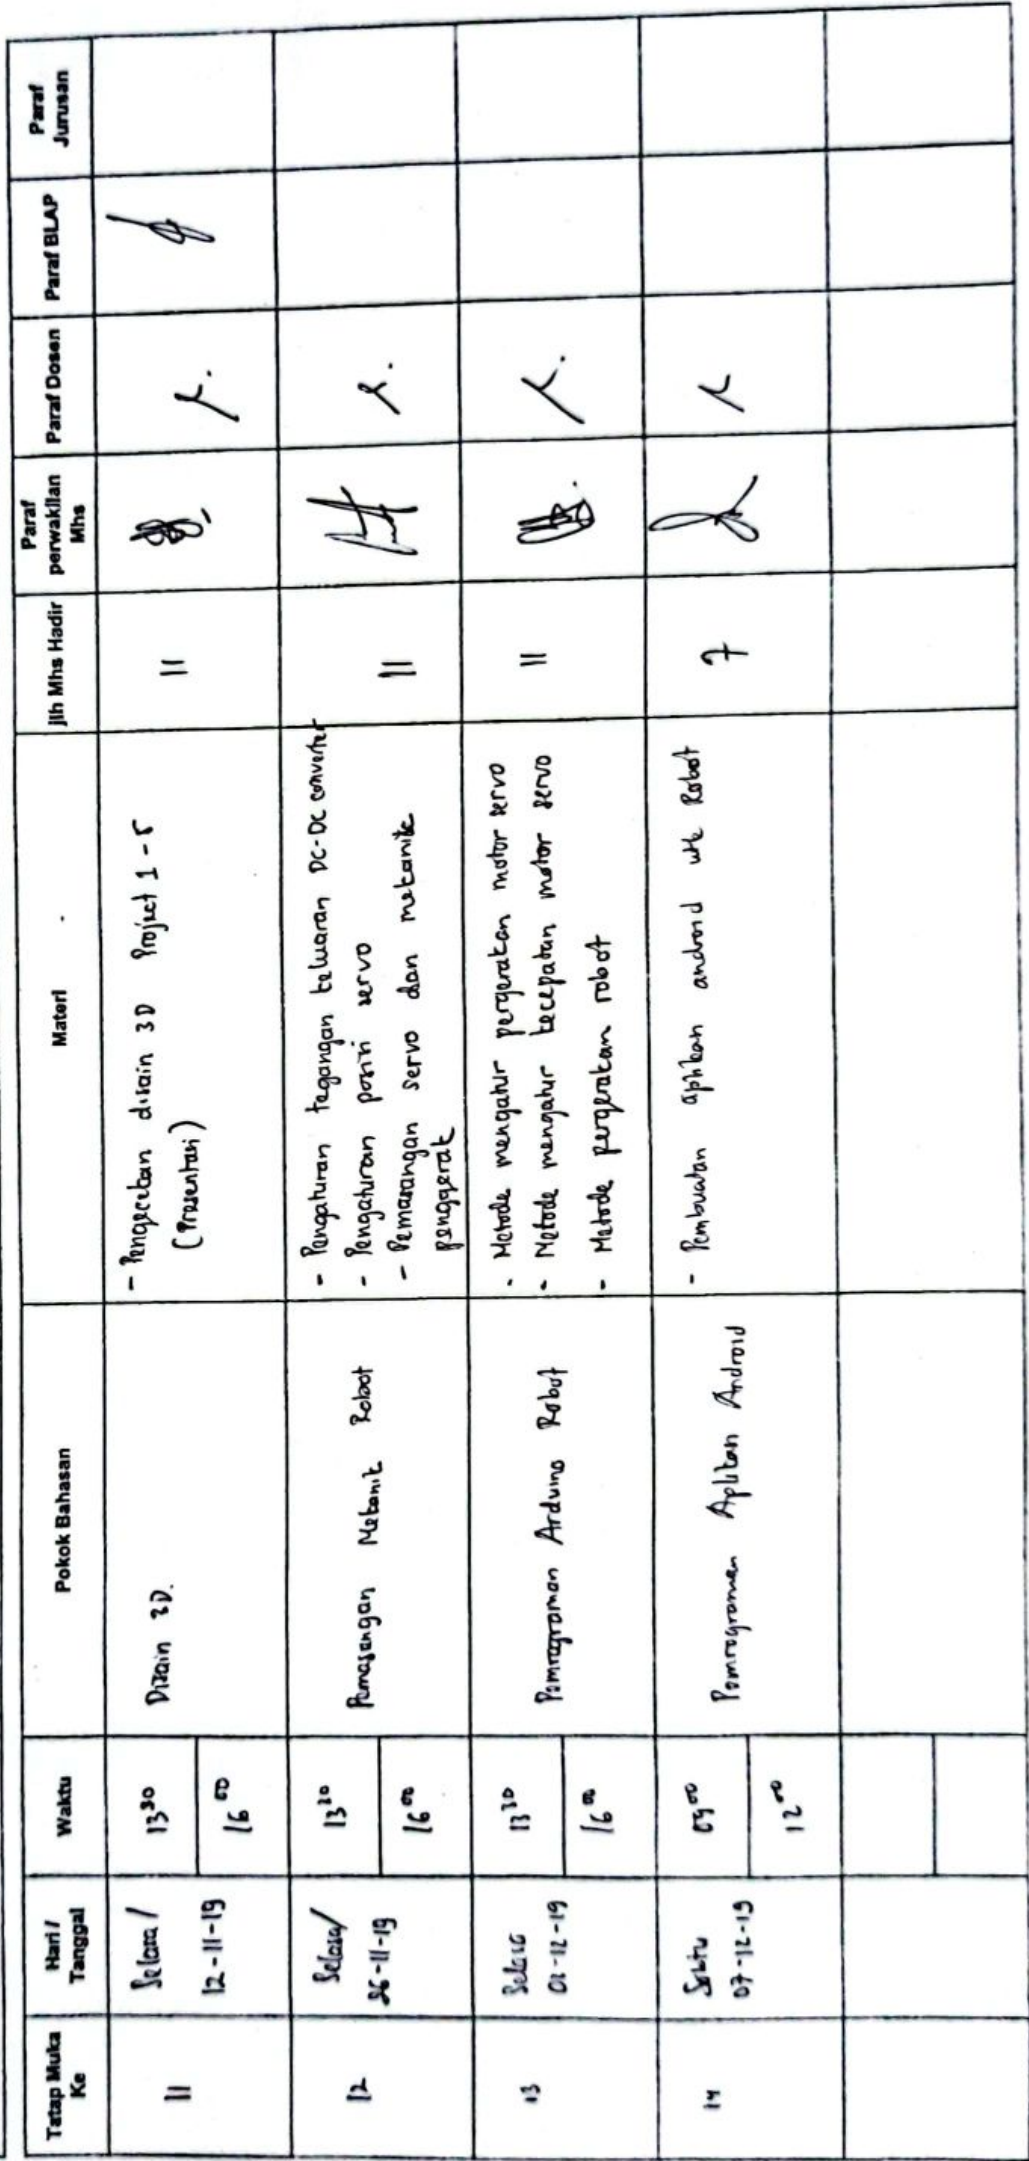 Tatap Muka Ke
Hari / Tanggal
Waktu
Pokok Bahasan
Materi
jlh Mhs Hadir
Paraf perwakilan Mhs
Paraf Dosen
Paraf BLAP
Paraf Jurusan
11
Selasa /
12-11-19
13 30
16 00
Disain 3D.
- Pengecekan disain 3D Project 1 - 5
(Presentasi)
11
12
Selasa/
26-11-19
13 30
16 00
Pemasangan Mekanik Robot
- Pengaturan tegangan keluaran DC-DC converter
- Pengaturan posisi servo
- Pemasangan servo dan mekanik
penggerak
11
13
Selasa
-12-19
13 30
16 00
Pemrograman Arduino Robot
- Metode mengatur pergerakan motor servo
- Metode mengatur kecepatan motor servo
- Metode pergerakan robot
11
14
Sabtu
07-12-19
09 00
12 00
Pemrograman Aplikasi Android
- Pembuatan aplikasi android utk Robot
7